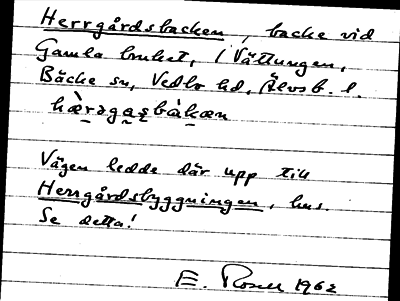 Herrgårdsbacken, backe vid
Gamla bruket, i Vättungen,
Bäcke sn, Vedbo hd, Älvsb. l.
hæ̀rəgaṣbàkæn
Vägen ledde där upp till
Herrgårdsbyggningen, hus.
Se detta!
E. Rosell 1962